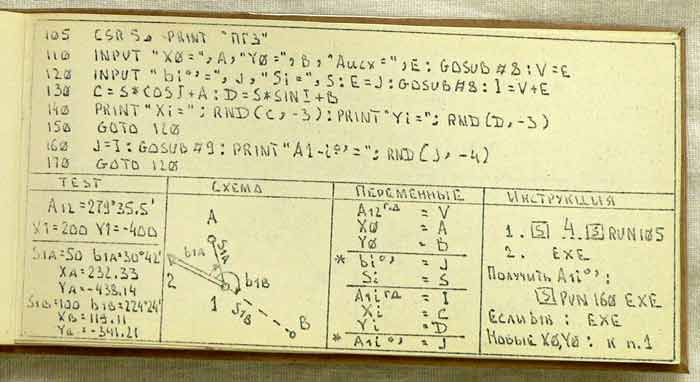 105 CSR 5, PRINT "ПГЗ"
110 INPUT "XØ=", A, "YØ=", B, "Aисх=", E: GOSUB #8: V=E
120 INPUT "bi°'=", J, "Si=", S: E=J: GOSUB#8: I=V+E
130 C=S*COSI+A: D=S*SINI+B
140 PRINT "Xi="; RND(C,-3): PRINT "Yi="; RND(D,-3)
150 GOTO 120
160 J=I: GOSUB #9: PRINT "A1-i°'="; RND(J,-4)
170 GOTO 120
TEST
A12=279°35.5'
X1=200 Y1=-400
S1A=50 b1A=30°42'
XA=232.33
YA=-438.14
S1B=100 b1B=224°24'
XB=119.11
YB=-341.21
СХЕМА
A
S1A
b1A
2
b1B
1
S1B
B
ПЕРЕМЕННЫЕ
A12ГД = V
XØ = A
YØ = B
* bi°' = J
Si = S
A1iГД = I
Xi = C
Yi = D
* A1i°' = J
ИНСТРУКЦИЯ
1. S 4. S RUN105
2. EXE
Получить A1i°':
S RUN 160 EXE
Если b1B: EXE
Новые XØ,YØ: к п.1